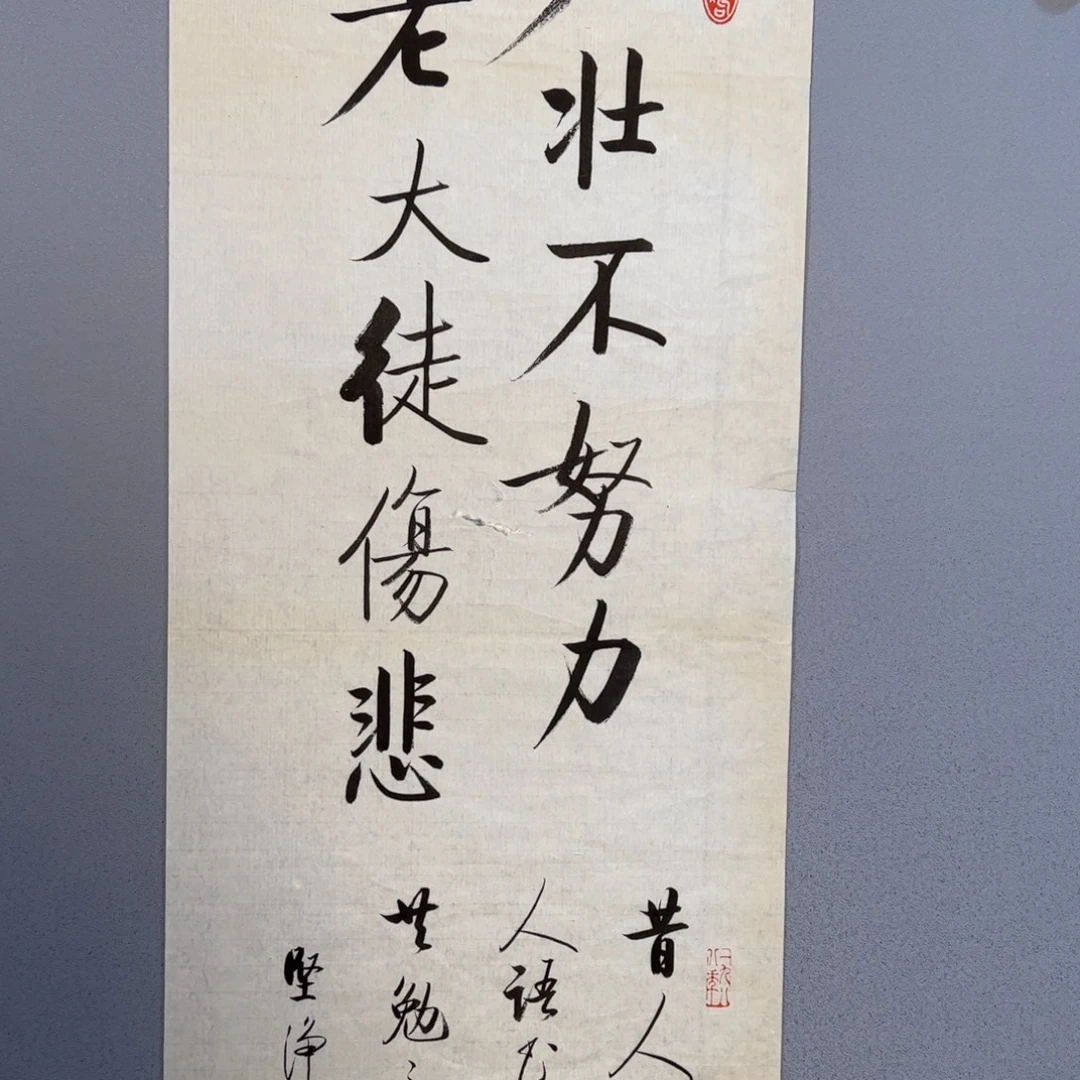 壮不努力
老大徒傷悲
昔人
人語
共勉
堅淨